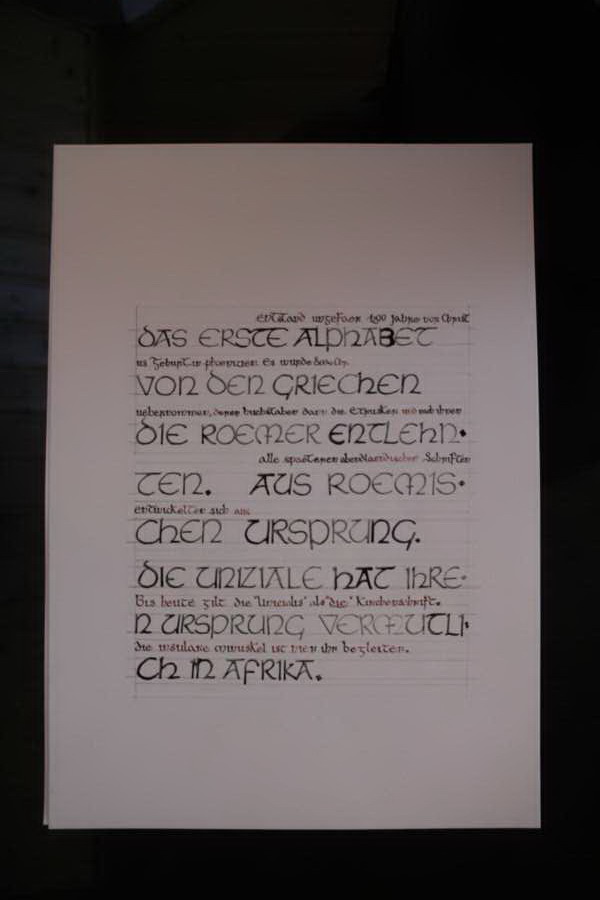 entstand ungefaer 1200 Jahre vor Christ
DAS ERSTE ALPHABET
us Geburt in phoenizien. Es wurde
VON DEN GRIECHEN
uebernommen, deren buchstaben dann die Etrusker und nach ihnen
DIE ROEMER ENTLEHN·
alle spaeteren abendlaendischen Schriften
TEN. AUS ROEMIS·
entwickelten sich aus
CHEN URSPRUNG.
DIE UNIZIALE HAT IHRE·
Bis heute gilt die "Unzialis" als "die" Kirchenschrift.
N URSPRUNG VERMUTLI·
die insulare minuskel ist hier ihr begleiter.
CH IN AFRIKA.